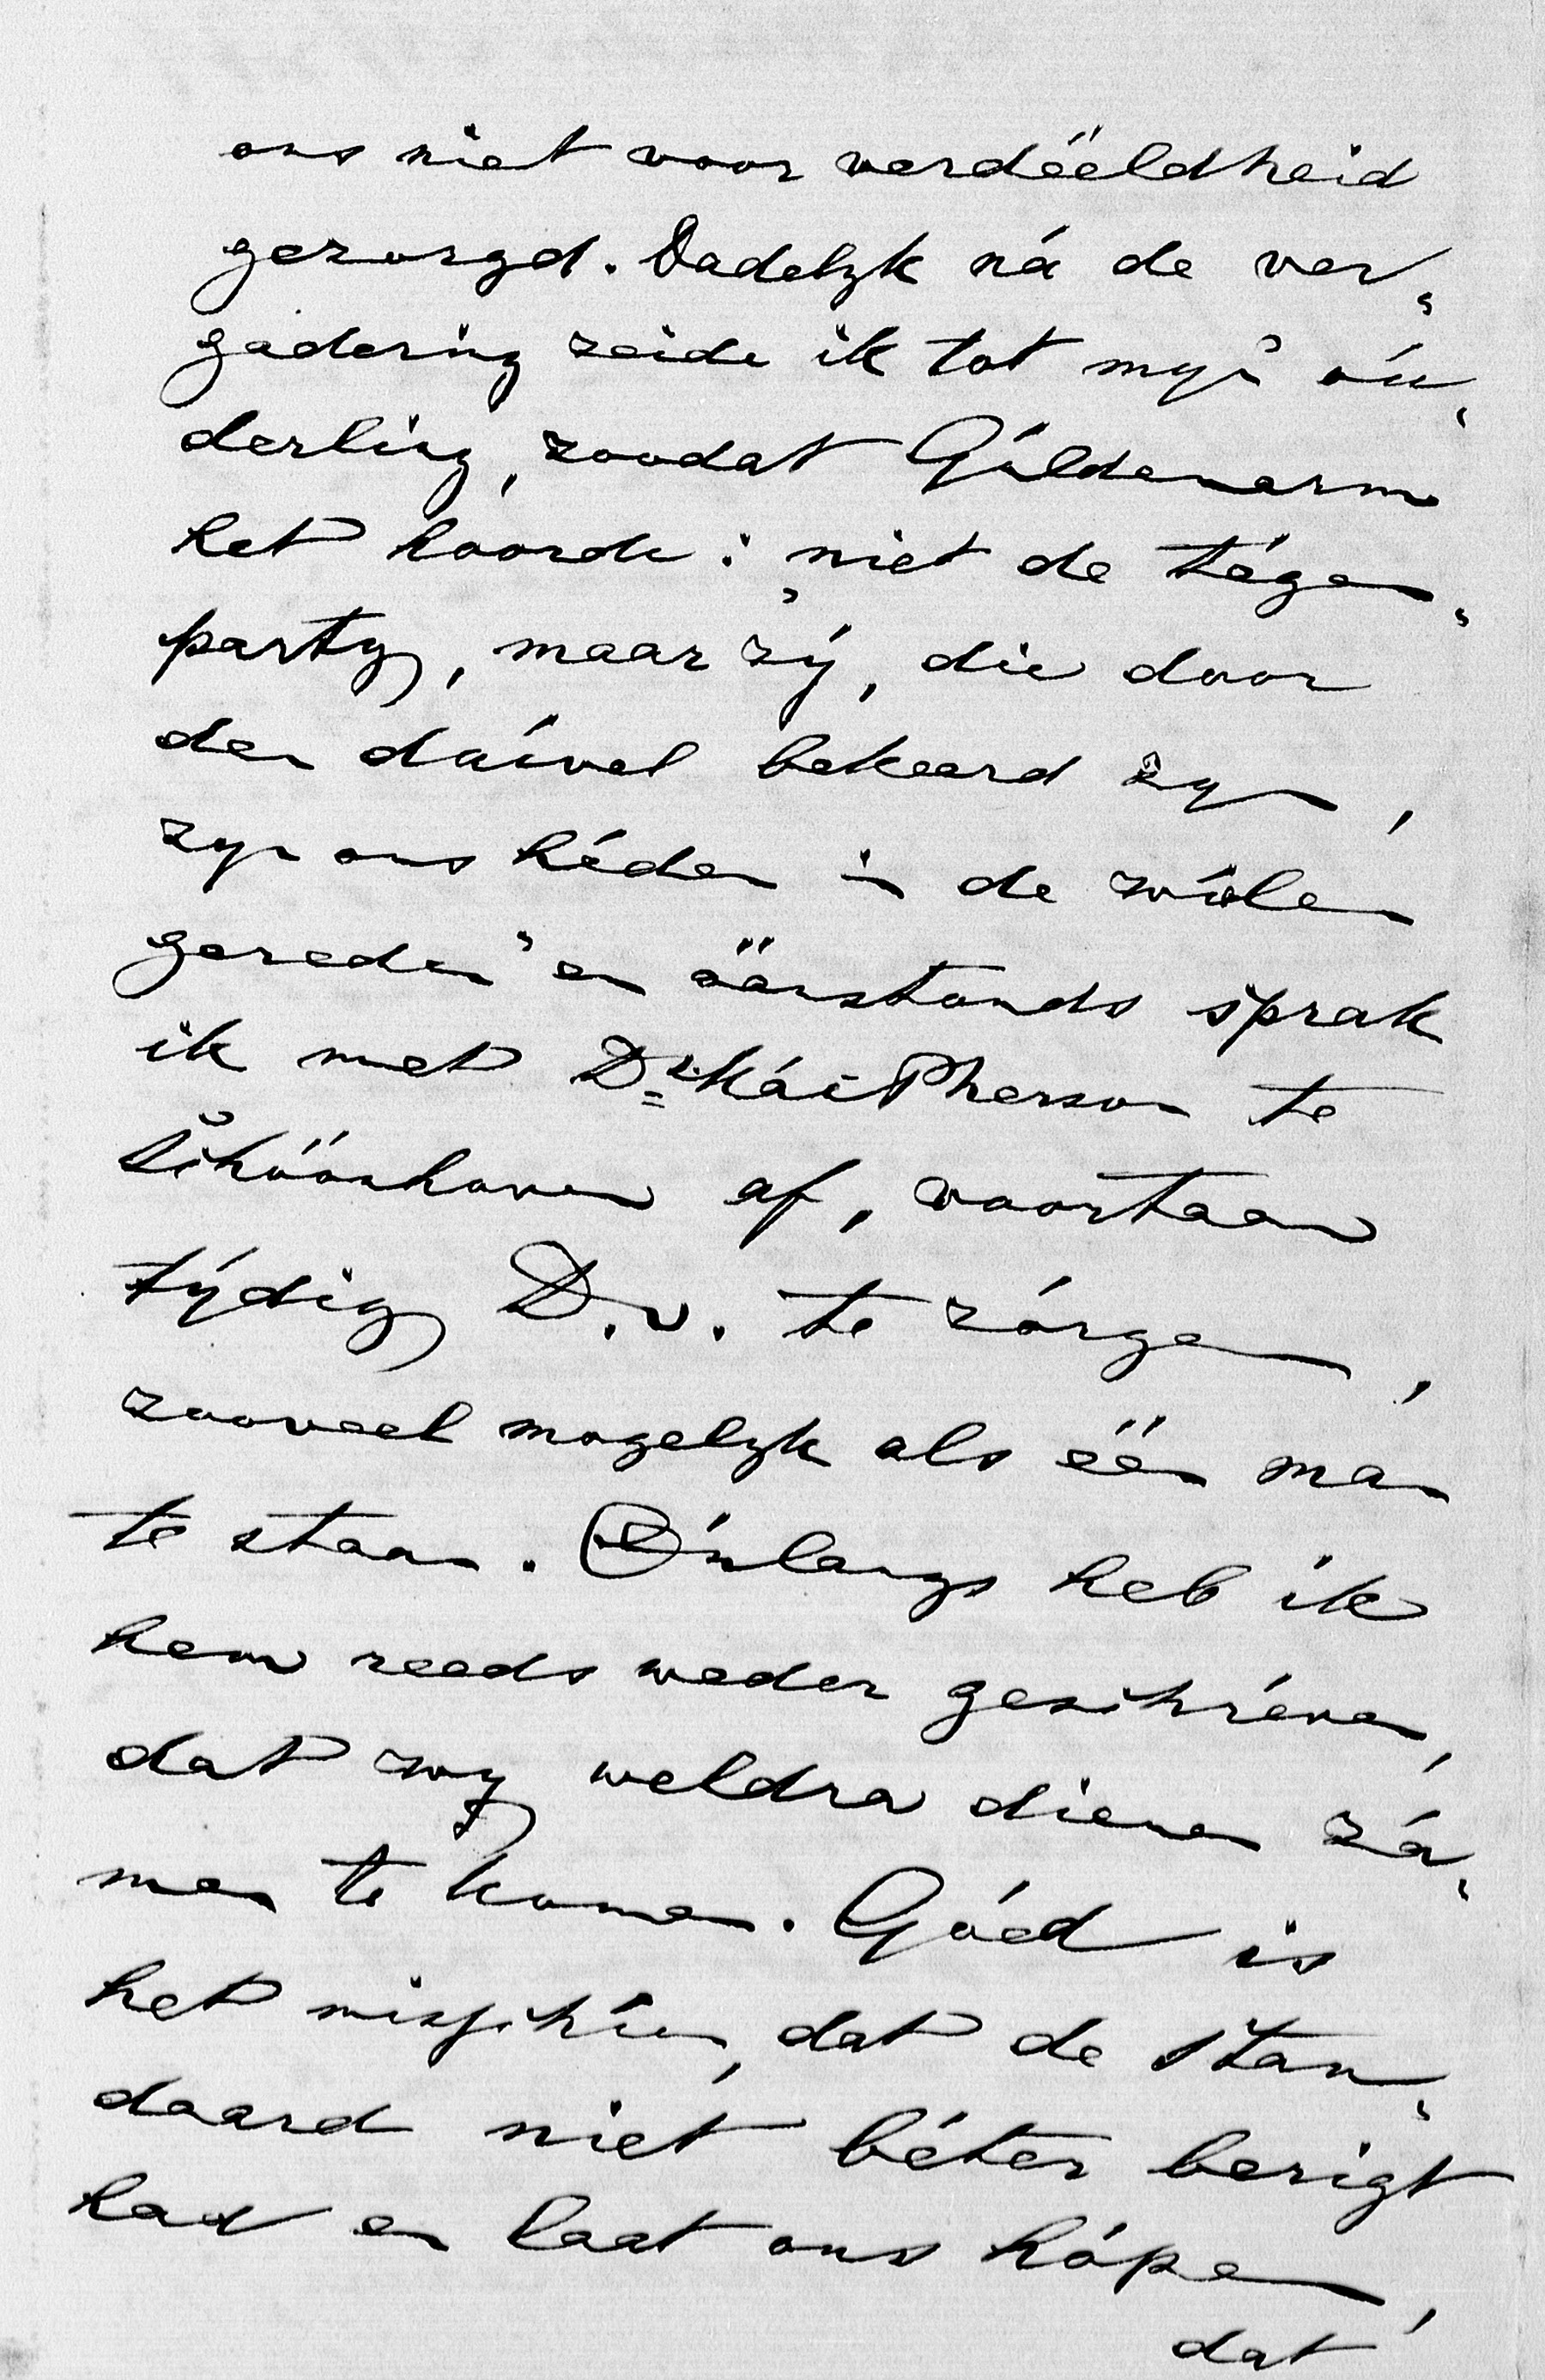 ons niet voor verdééldheid
gezorgd. Dadelyk ná de ver„
gadering zeide ik tot myn óu„
derling, zoodat Güldenarm
het hoorde: „niet de tégen„
party, maar zý, die door
den duível bekeerd zyn,
zyn ons héden in de wíelen
gereden" en áánstonds sprak
ik met Dr. MácPherson te
Schóónhoven af, voortaan
týdig D.v. te zórgen,
zooveel mogelyk als één man
te staan. Ónlangs heb ik
hem reeds weder geschréven,
dat wy weldra dienen zá„
men te komen. Góed is
het misschíen, dat de Stan„
daard niet béter berigt
had en laat ons hópen,
dat